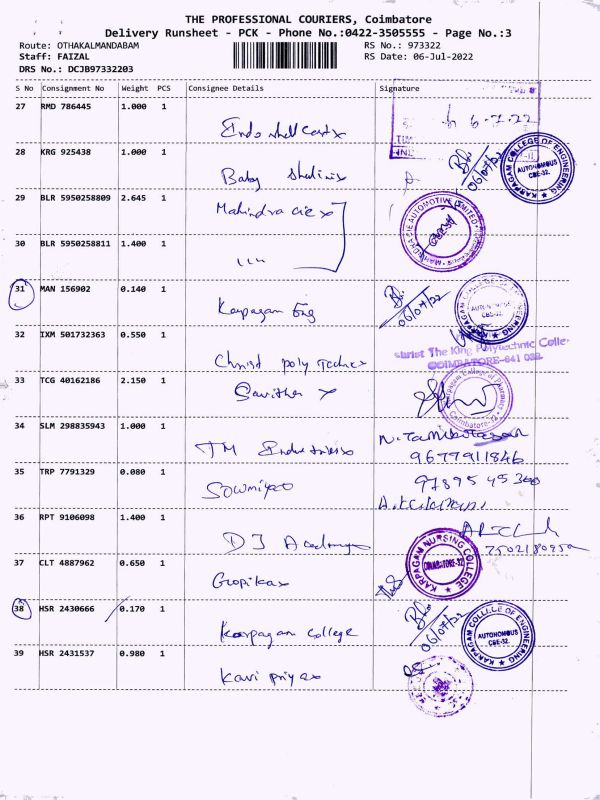 THE PROFESSIONAL COURIERS, Coimbatore
Delivery Runsheet - PCK - Phone No.:0422-3505555 - Page No.:3
Route: OTHAKALMANDABAM RS No.: 973322
Staff: FAIZAL RS Date: 06-Jul-2022
DRS No.: DCJB97332203
S No Consignment No Weight PCS Consignee Details Signature
27 RMD 786445 1.000 1
6-7-22
28 KRG 925438 1.000 1
Baby 06/07/22
KARPAGAM COLLEGE OF ENGINEERING
AUTONOMOUS
CBE-32.
29 BLR 5950258809 2.645 1
Mahindra cie
MAHINDRA CIE AUTOMOTIVE LIMITED
30 BLR 5950258811 1.400 1
31 MAN 156902 0.140 1
Karpagam Eng 06/07/22
KARPAGAM COLLEGE OF ENGINEERING
AUTONOMOUS
CBE-32.
32 IXM 501732363 0.550 1
Christ poly
Christ The King Polytechnic College
COIMBATORE-641 032.
33 TCG 40162186 2.150 1
Savitha
Karpagam College of Pharmacy
Coimbatore-32
34 SLM 298835943 1.000 1
TM Industries N. Tamilarasan
9677911846
35 TRP 7791329 0.080 1
Sowmiya
36 RPT 9106098 1.400 1
DJ Academy
37 CLT 4887962 0.650 1
Gopika
KARPAGAM NURSING COLLEGE
COIMBATORE-32
38 HSR 2430666 0.170 1
Karpagam college 06/07/22
KARPAGAM COLLEGE OF ENGINEERING
AUTONOMOUS
CBE-32.
39 HSR 2431537 0.980 1
Kavi priya